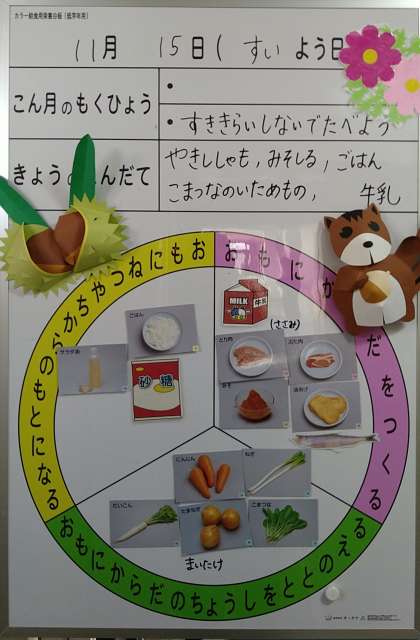 カラー給食用栄養白板(低学年用)
11月 15日(すいよう日
こん月のもくひょう
・
・すききらいしないでたべよう
きょうの んだて
やきししゃも,みそしる,ごはん
こまつなのいためもの, 牛乳
おもにねつやちからのもとになる
おもにか だをつくる
おもにからだのちょうしをととのえる
MILK 牛乳
(ささみ)
ごはん
サラダ油
砂糖
とり肉
ぶた肉
みそ
油あげ
にんじん
ねぎ
だいこん
たまねぎ
こまつな
まいたけ